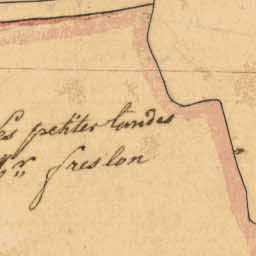 es petites landes
freslon